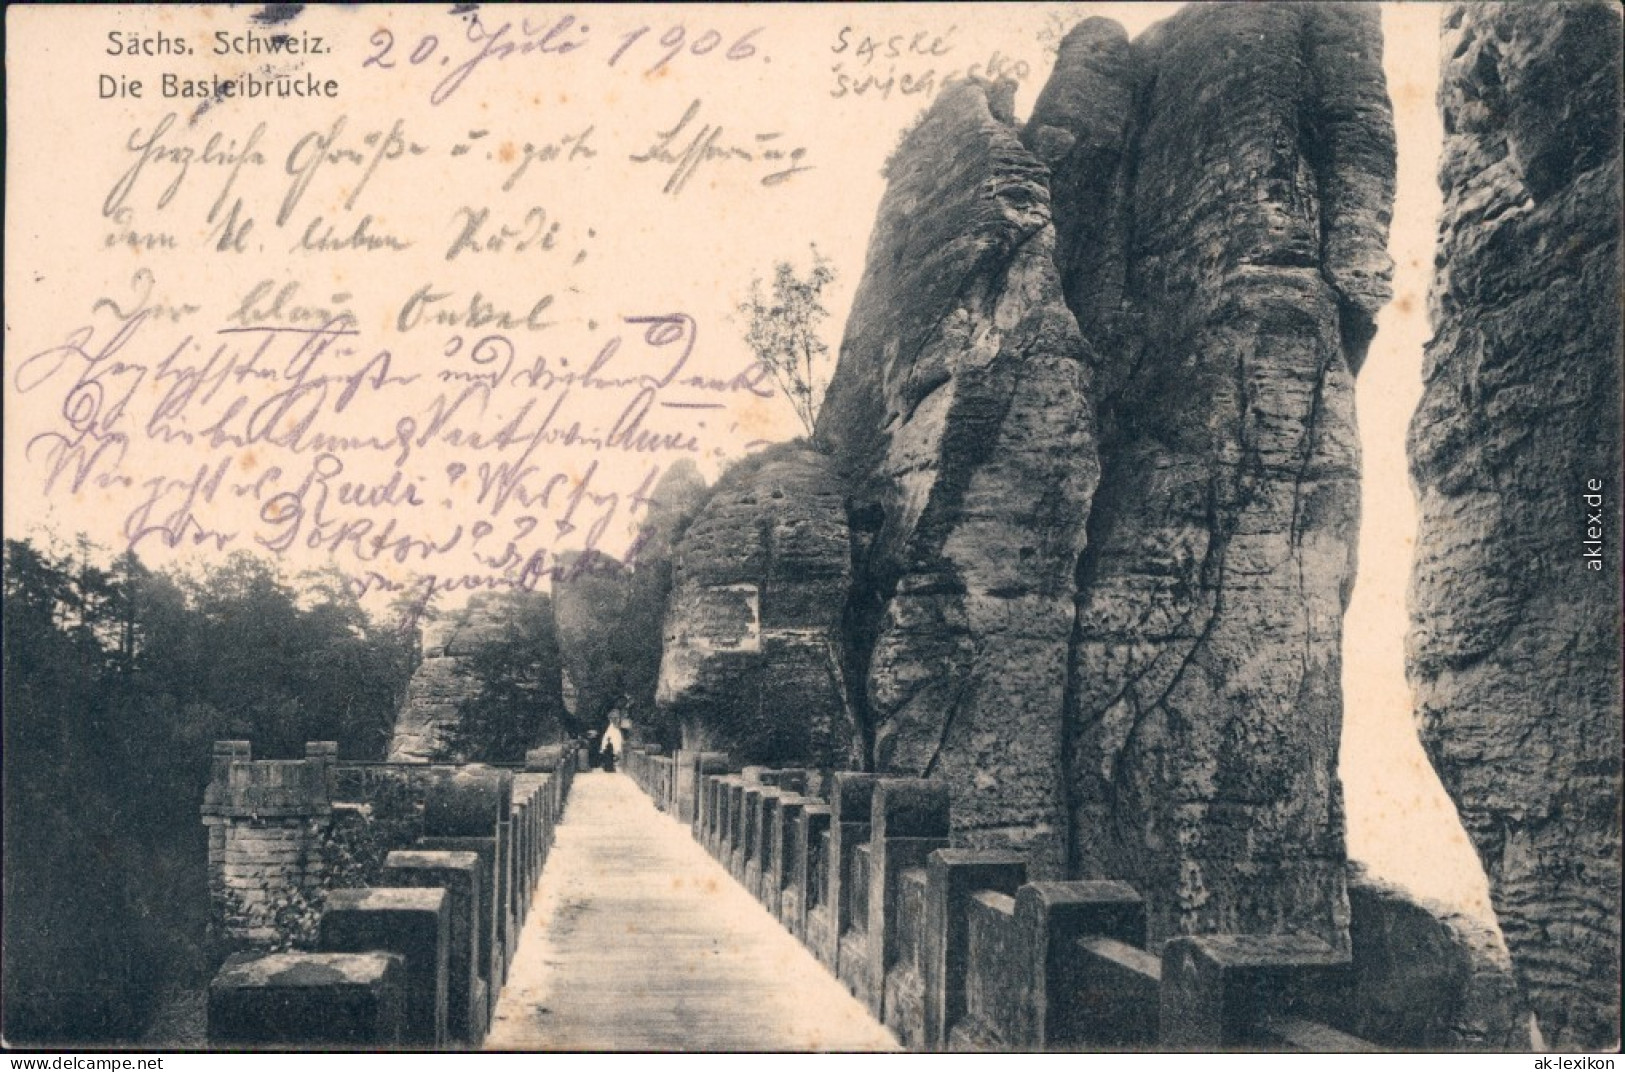 Sächs. Schweiz.
Die Basteibrücke
20. Juli 1906.
SASKÉ
Herzliche Grüße u. gute Besserung
dem kl. lieben Rudi;
Der blaue Onkel.
Herzlichste Grüße und vielen Dank
Die liebe Anna
Wie geht es Rudi? Was sagt
der Doktor???
aklex.de
www.delcampe.net
ak-lexikon